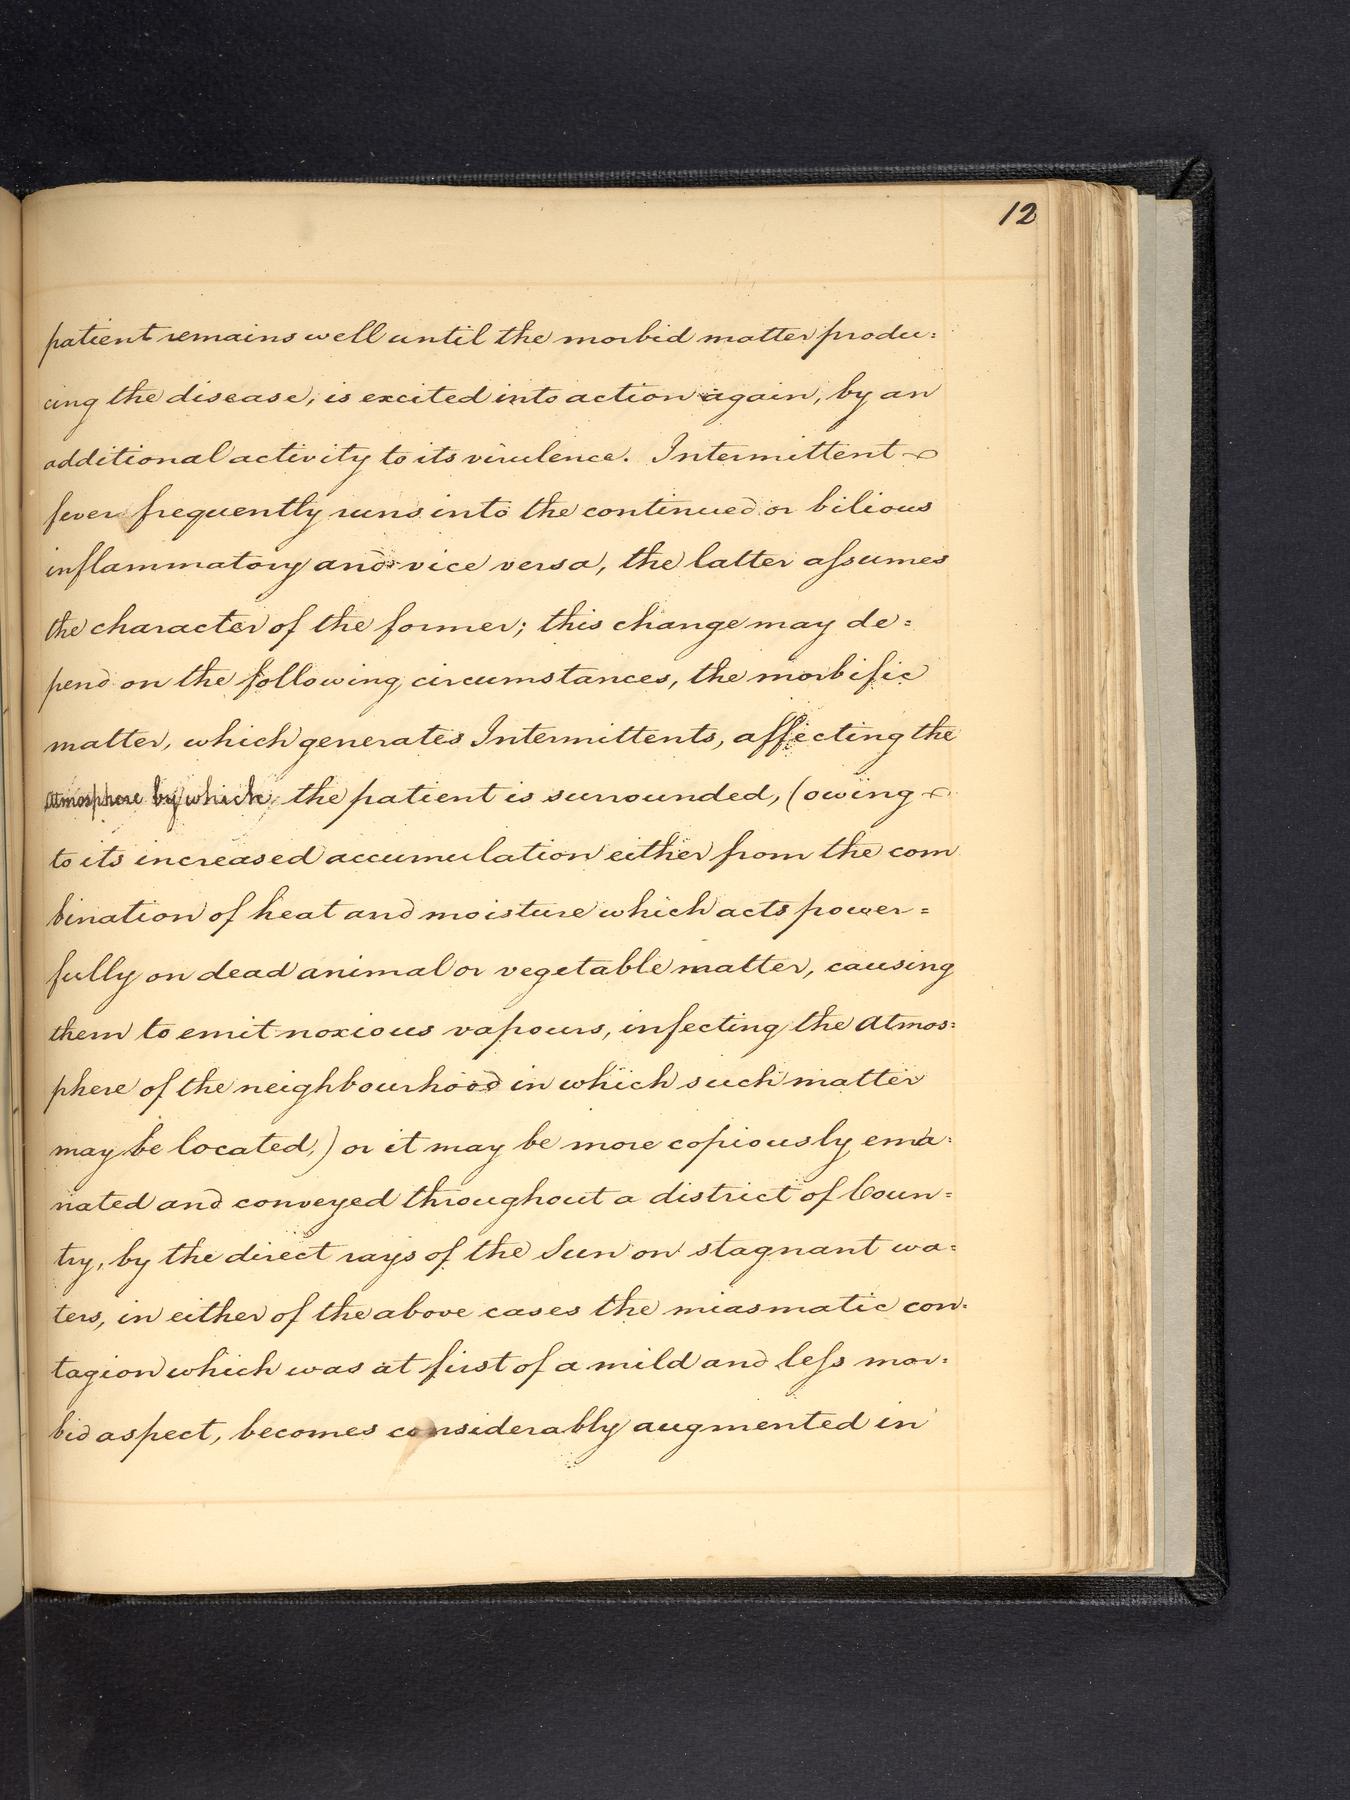 12
patient remains well until the morbid matter produ=
cing the disease, is excited into action again, by an
additional activity to its virulence. Intermittent
fever frequently runs into the continued or bilious
inflammatory and vice versa, the latter assumes
the character of the former; this change may de=
pend on the following circumstances, the morbific
matter, which generates Intermittents, affecting the
atmosphere by which the patient is surrounded, (owing
to its increased accumulation either from the com
bination of heat and moisture which acts power=
fully on dead animal or vegetable matter, causing
them to emit noxious vapours, infecting the atmos=
phere of the neighbourhood in which such matter
may be located,) or it may be more copiously ema=
nated and conveyed throughout a district of Coun=
try, by the direct rays of the Sun on stagnant wa=
ters, in either of the above cases the miasmatic con=
tagion which was at first of a mild and less mor=
bid aspect, becomes considerably augmented in